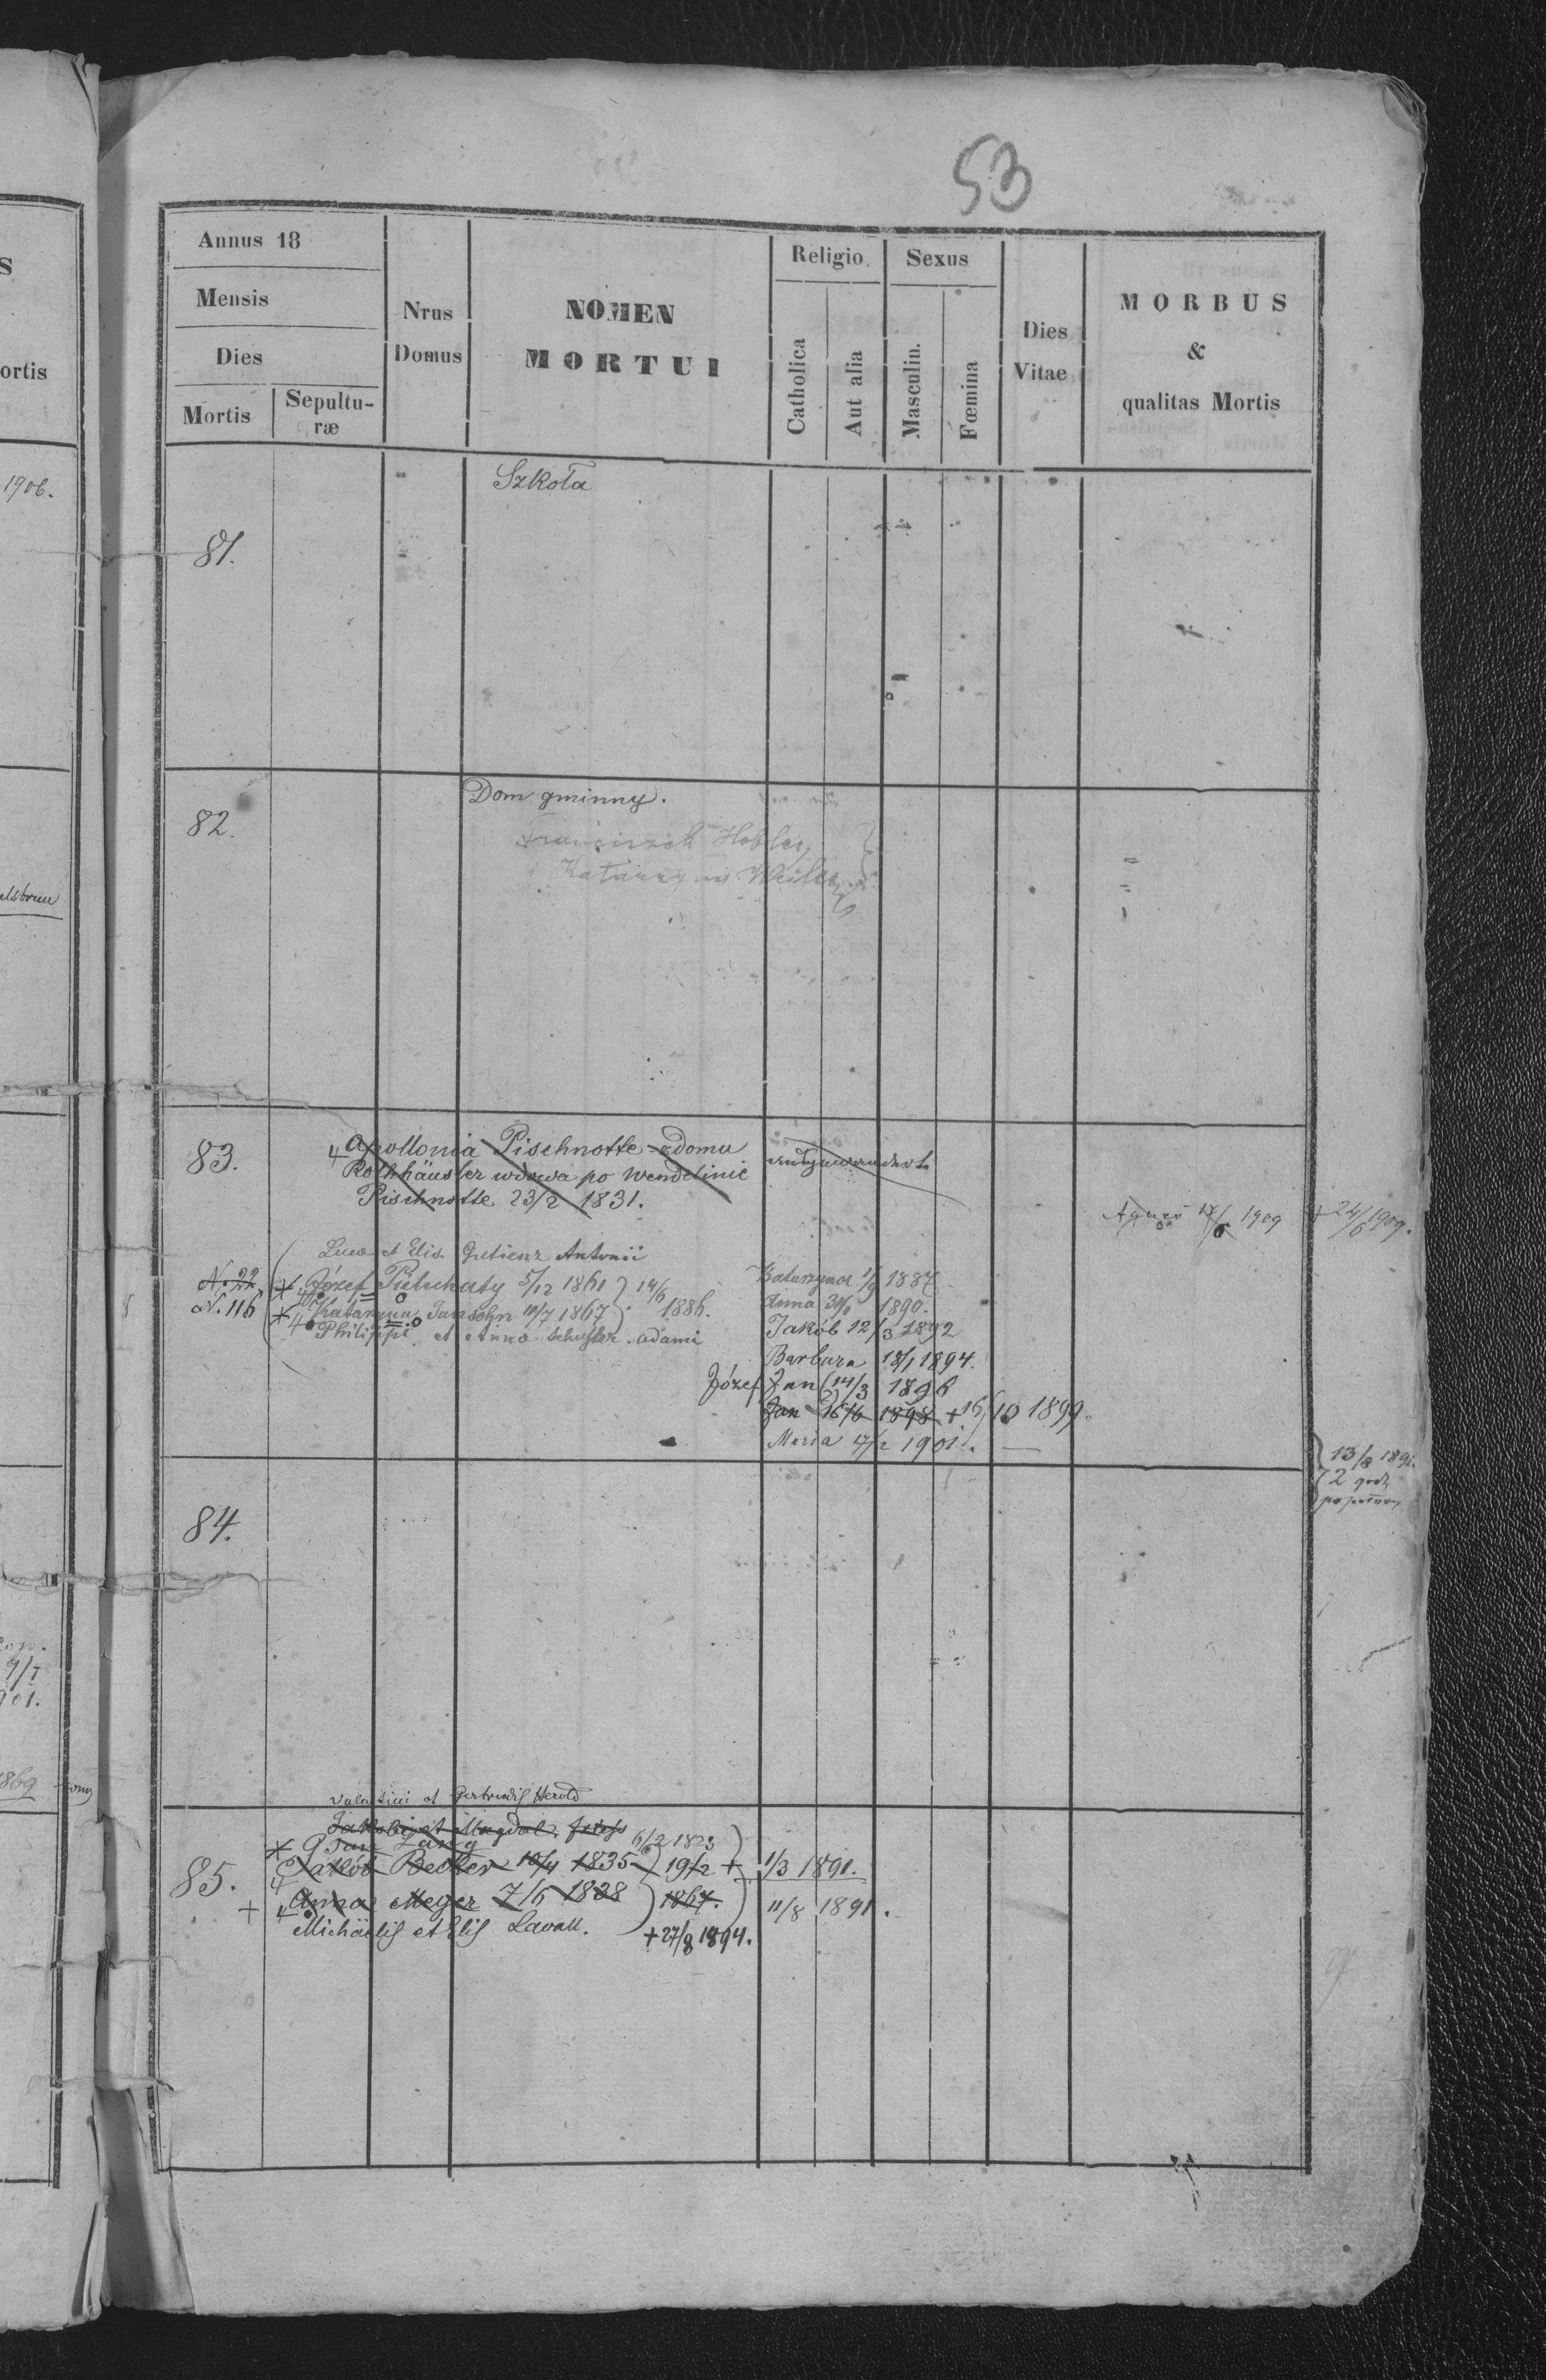 53
Annus 18
Mensis
Dies
Mortis
Sepultu-
ræ
Nrus
Domus
NOMEN
MORTUI
Religio
Catholica
Aut alia
Sexus
Masculin.
Fœmina
Dies
Vitae
MORBUS
&
qualitas Mortis
S
ortis
1906.
81.
Szkoła
82.
Dom gminny.
Franciszek
83.
Apollonia Pischnotte z domu
Rothhäusler wdowa po Wendelinie
Pischnotte 23/2 1831.
17/6 1909 + 24/6 1909.
Luca et Elis. Gutienz Antonii
N. 22 Józef 5/12 1861 14/6
N. 116 Katarzyna Jansohn 10/7 1867 1886.
Philippi et Anna Schuster adami
Katarzyna 1/9 1887
Anna 1890.
Jakób 12/3 1892
Barbara 18/1 1894.
Józef Jan 14/3 1896
Jan 16/6 1898 + 16/10 1899.
Maria 1901.
13/8 1891.
2 godz.
84.
Valentini et Gertrudis Herold
Jakobi et Magdal.
Jan Lang 6/2 1823
85.
Jakób Becker 10/4 1835 19/2 + 1/3 1891.
+ Anna Meyer 7/6 1838 1867. 11/8 1891.
Michaelis et Elis Lavall.
+ 27/8 1894.